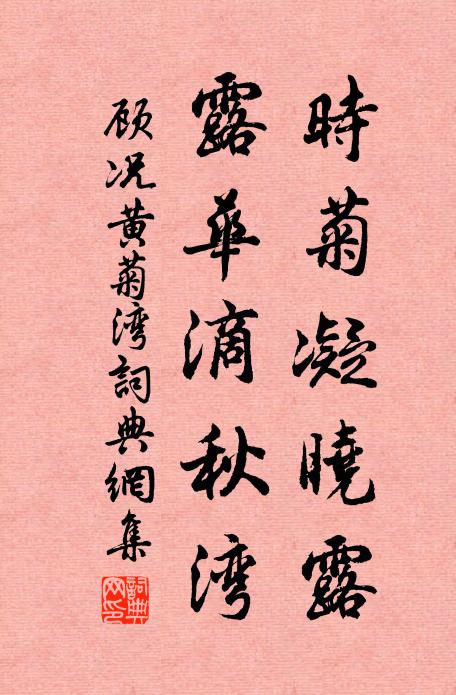 時菊凝曉露
露華滴秋湾
顾况黄菊湾詞典網集
詞典网印